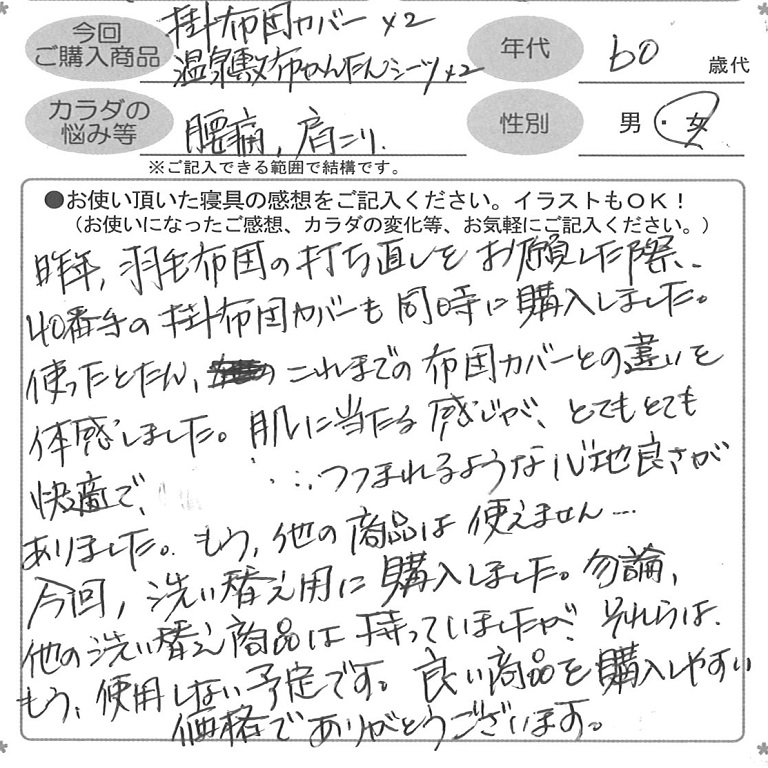 今回
ご購入商品
掛布団カバー×2
温泉敷布かんたんシーツ×2
年代
60
歳代
カラダの
悩み等
腰痛、肩こり
性別
男・女
※ご記入できる範囲で結構です。
●お使い頂いた寝具の感想をご記入ください。イラストもOK！
（お使いになったご感想、カラダの変化等、お気軽にご記入ください。）
昨年、羽毛布団の打ち直しをお願した際、
40番手の掛布団カバーも同時に購入しました。
使ったとたん、これまでの布団カバーとの違いを
体感しました。肌に当たる感じが、とてもとても
快適で、つつまれるような心地良さが
ありました。もう、他の商品は使えません…
今回、洗い替え用に購入しました。勿論、
他の洗い替え商品は持っていましたが、それらは、
もう、使用しない予定です。良い商品を購入しやすい
価格でありがとうございます。